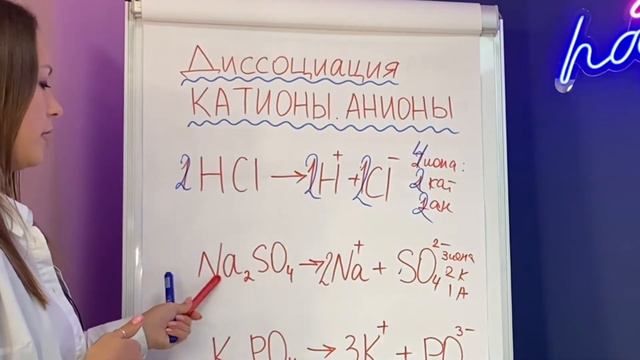 Диссоциация
КАТИОНЫ. АНИОНЫ
2HCl → 2H⁺ + 2Cl⁻ 4 иона:
2 кат
2 ан
Na₂SO₄ → 2Na⁺ + SO₄²⁻ 3 иона
2 К
1 А
K₃PO₄ → 3K⁺ + PO₄³⁻